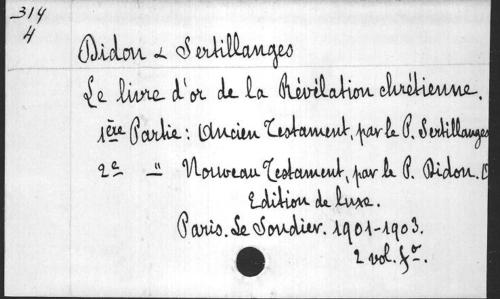 314
4
Didon & Sertillanges
Le livre d'or de la Révélation chrétienne.
1ère Partie: Ancien Testament, par le P. Sertillanges
2e " Nouveau Testament, par le P. Didon. O
Edition de luxe.
Paris. Le Soudier. 1901-1903.
2 vol. fo.